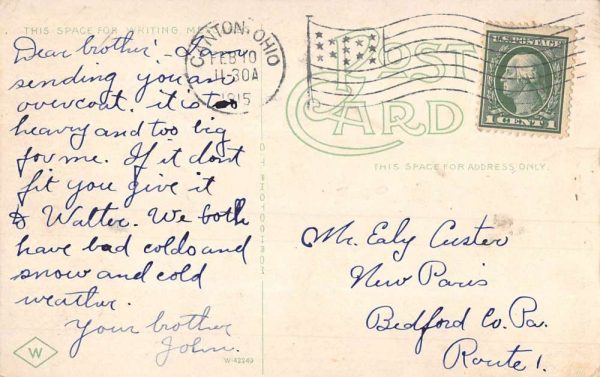 THIS SPACE FOR WRITING
Dear brother:- I am
sending you an
overcoat. it is too
heavy and too big
for me. If it dont
fit you give it
to Walter. We both
have bad colds and
snow and cold
weather.
Your brother
John.
W
W-42249
CANTON, OHIO
FEB 10
11-30A
1915
POST
CARD
U.S. POSTAGE
1 CENT 1
THIS SPACE FOR ADDRESS ONLY.
Mr. Ealy Custer
New Paris
Bedford Co. Pa.
Route 1.